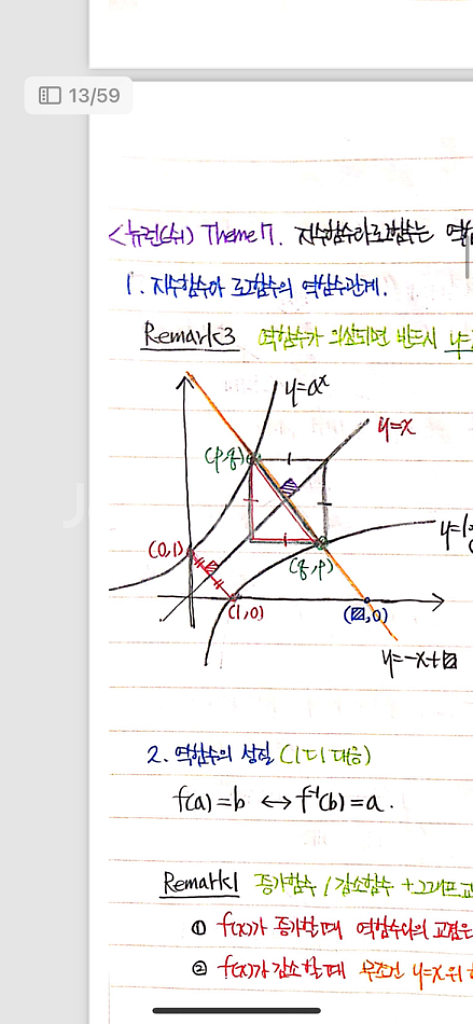 13/59
<뉴런(쉬) Theme 7. 지수함수와 로그함수는 역함
1. 지수함수와 로그함수의 역함수관계.
Remark3 역함수가 의심되면 반드시 y=
y=aˣ
y=x
(p,q)
(0,1)
(q,p)
(1,0)
(▨,0)
y=-x+▨
2. 역함수의 성질 (1대1 대응)
f(a)=b ↔ f⁻¹(b)=a.
Remark1 증가함수 / 감소함수 + 그래프
① f(x)가 증가할 때 역함수와의 교점은
② f(x)가 감소할 때 무조건 y=x위